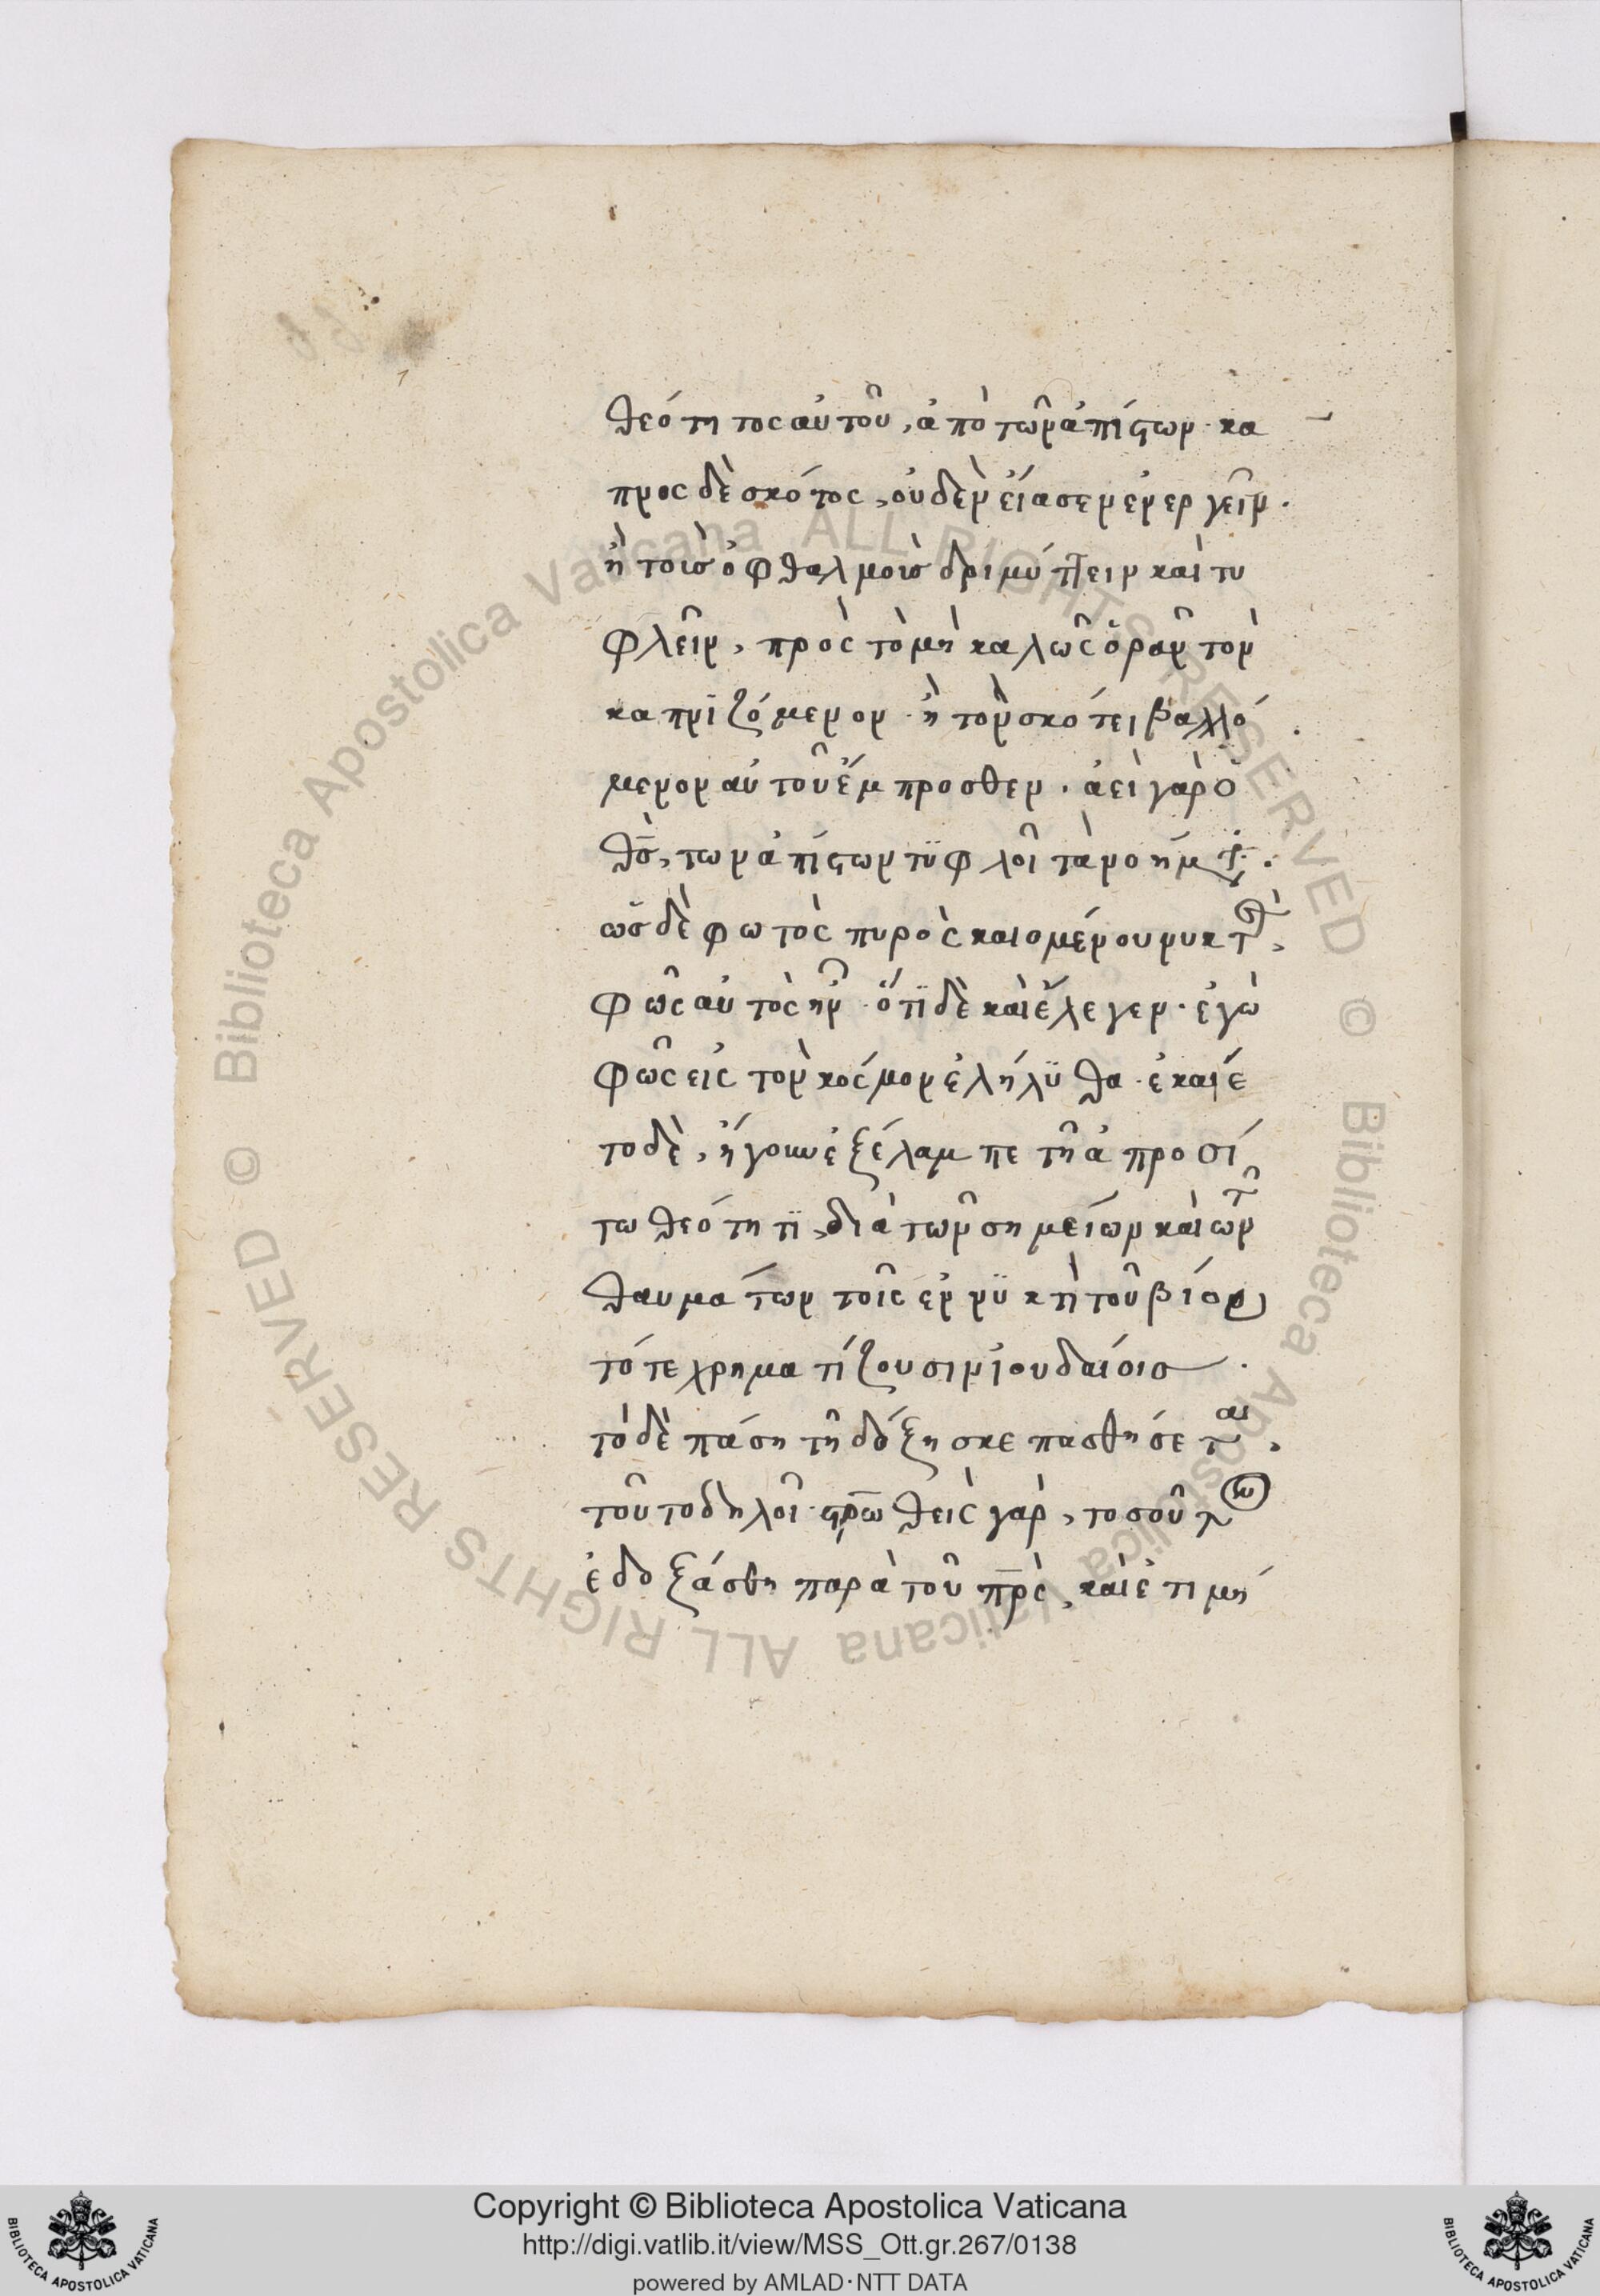 θεότητος αὐτοῦ, ἀπὸ τῶν ἀπίστων· κα
πνος δὲ σκότος, οὐδὲν εἴασεν ἐνεργεῖν.
ἢ τοῖς ὀφθαλμοῖς δριμύττειν καὶ τυ
φλεῖν, πρὸς τὸ μὴ καλῶς ὁρᾶν τὸν
καπνϊζόμενον· ἢ τὸν σκότει βαλλό
μενον αὐτοῦ ἔμπροσθεν. ἀεὶ γὰρ ὁ
θς̅, των ἀπίστων τϋφλοῖ τὰ νοήμ
ὡς δὲ φωτὸς πυρὸς καιομένου νυκτὸς,
φῶς αὐτὸς ἦν· ὅτϊ δὲ καὶ ἔλεγεν· ἐγὼ
φῶς εἰς τὸν κόσμον ἐλήλϋθα· ἐκαίε
το δὲ, ἤγουν ἐξέλαμπε τῆ ἀπροσί
τω θεότητϊ, διὰ τῶν σημείων καὶ τῶν
θαυμάτων τοῖς ἐν νϋκτὶ τοῦ βίου
τότε χρηματίζουσιν ἰουδαίοις.
τὸ δὲ πάση τῆ δόξη σκεπασθήσεται,
τοῦτο δηλοῖ· στρω̅θεὶς γὰρ, τοσοῦτον
ἐδοξάσθη παρὰ τοῦ πρ̅ς, καὶ ἐτιμή
Copyright © Biblioteca Apostolica Vaticana
http://digi.vatlib.it/view/MSS_Ott.gr.267/0138
powered by AMLAD·NTT DATA